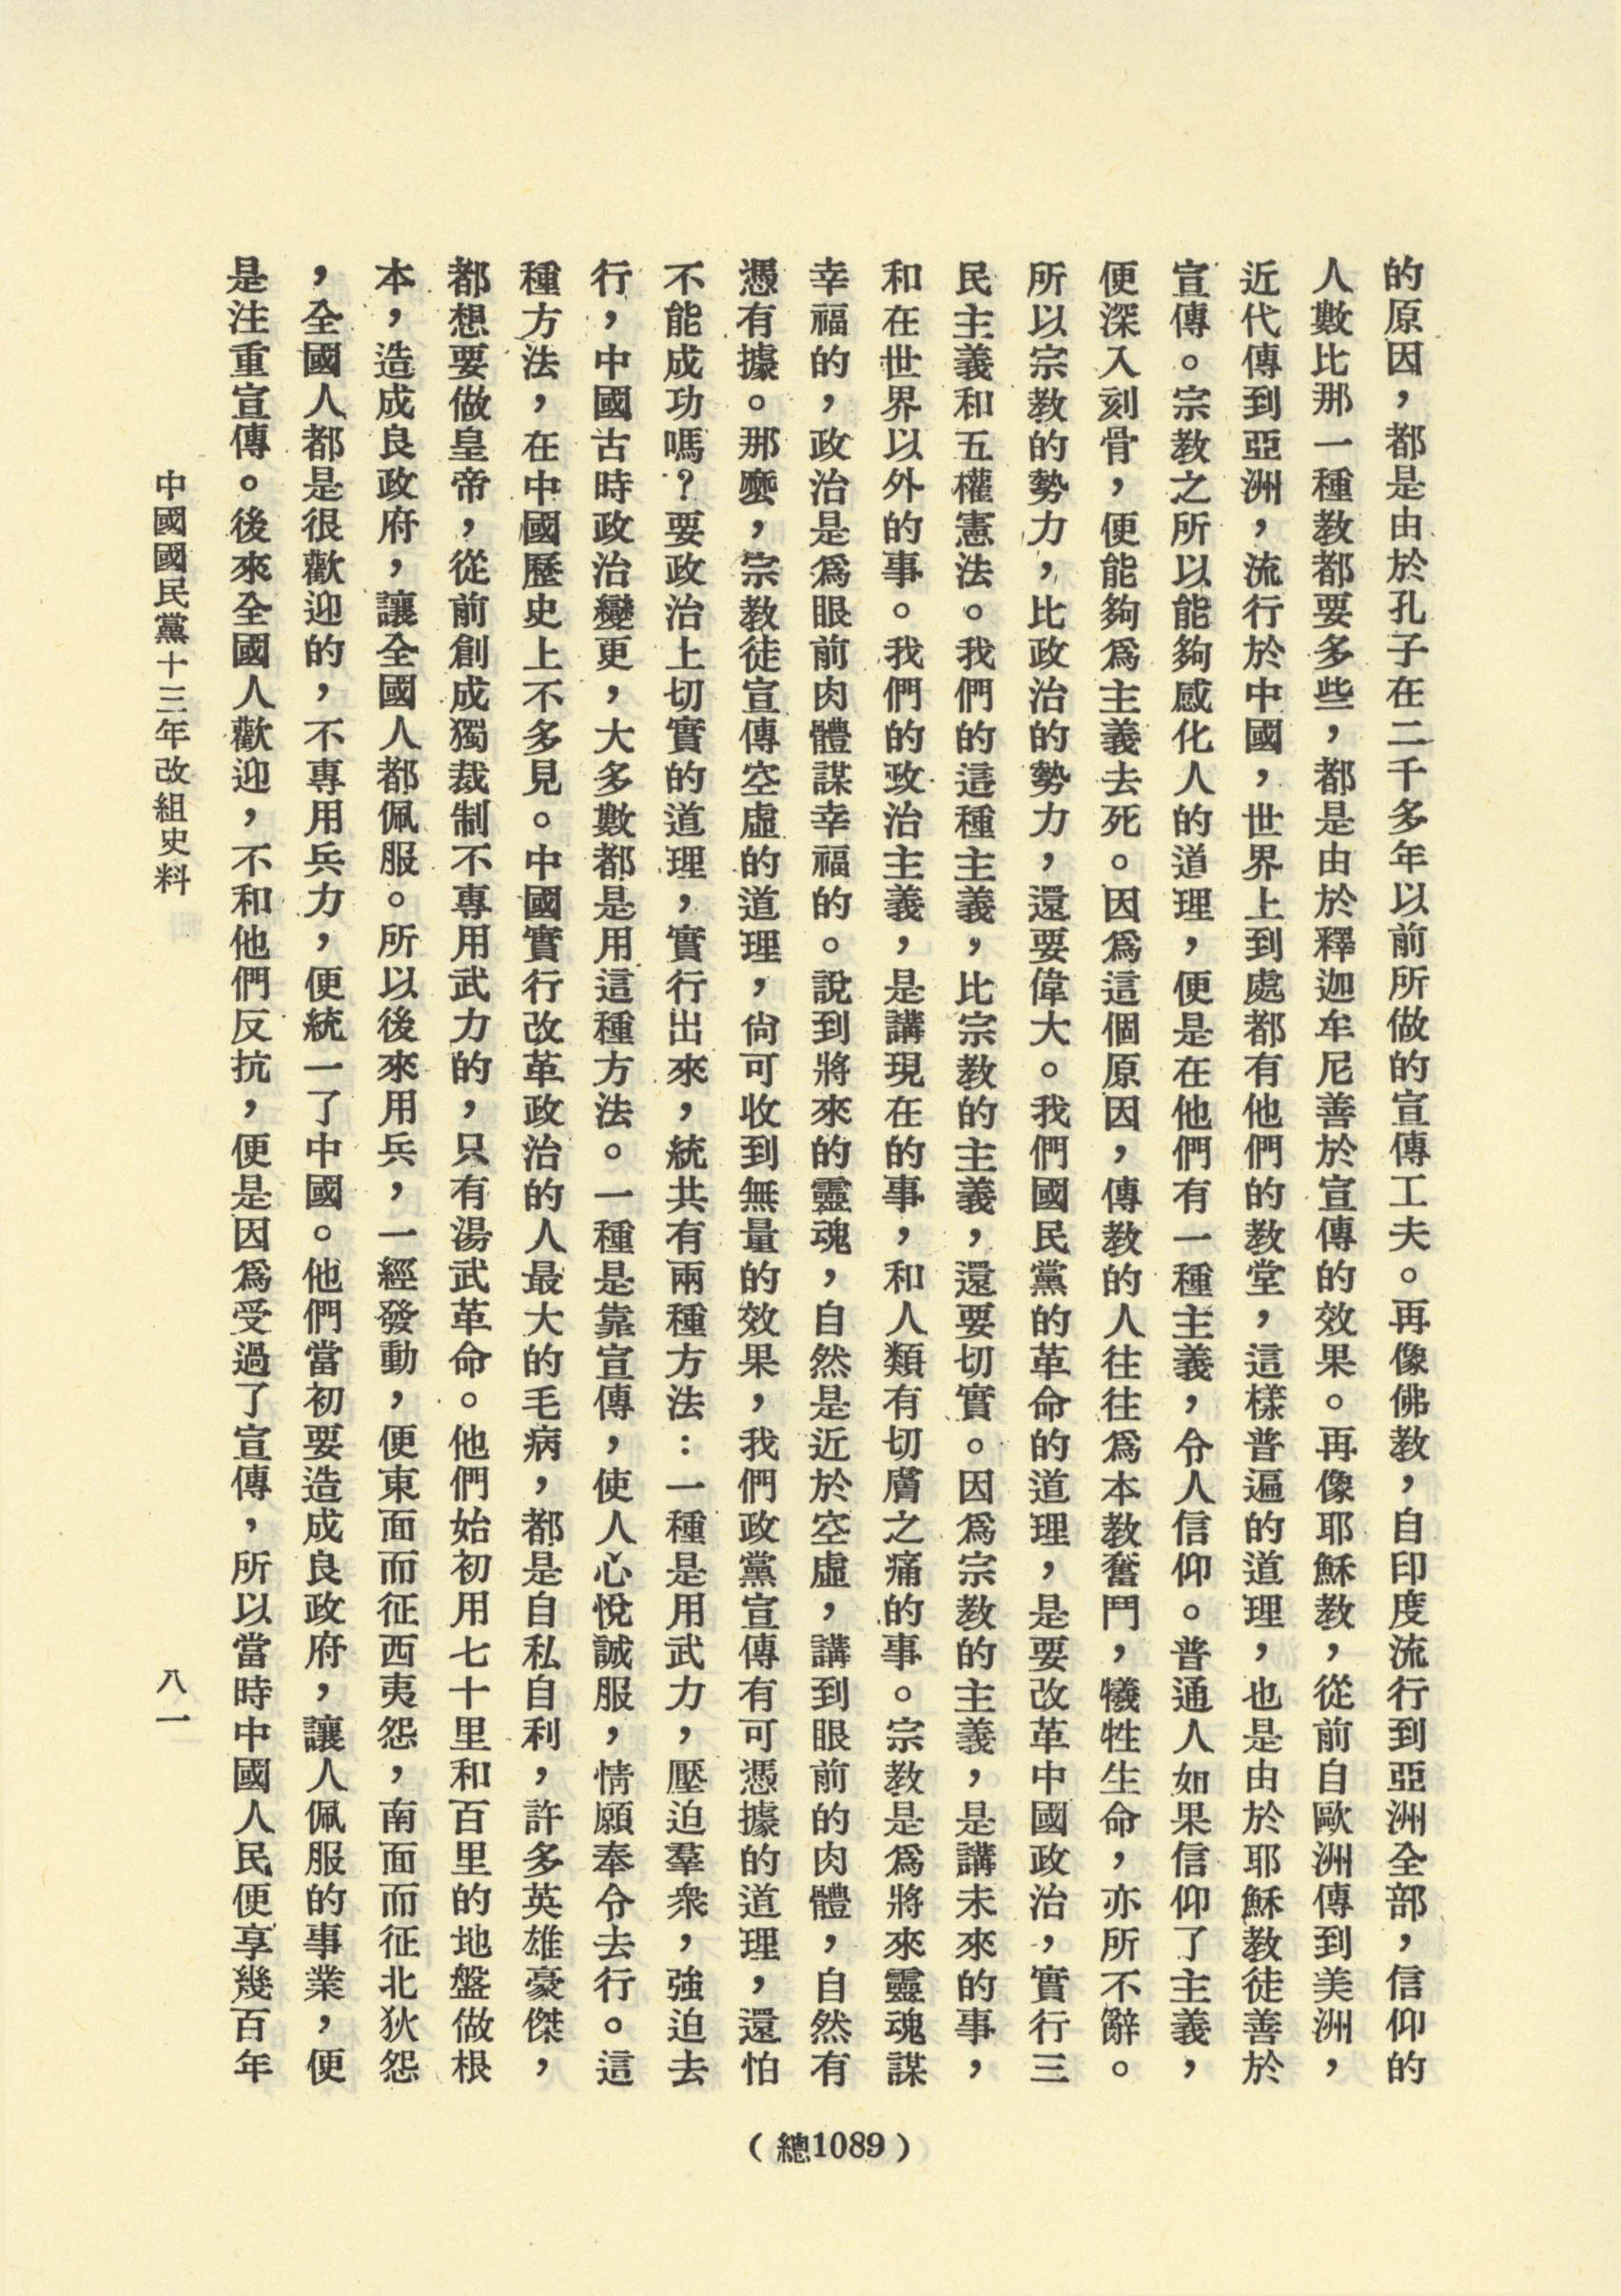 的原因，都是由於孔子在二千多年以前所做的宣傳工夫。再像佛教，自印度流行到亞洲全部，信仰的
人數比那一種教都要多些，都是由於釋迦牟尼善於宣傳的效果。再像耶穌教，從前自歐洲傳到美洲，
近代傳到亞洲，流行於中國，世界上到處都有他們的教堂，這樣普遍的道理，也是由於耶穌教徒善於
宣傳。宗教之所以能夠感化人的道理，便是在他們有一種主義，令人信仰。普通人如果信仰了主義，
便深入刻骨，便能夠爲主義去死。因爲這個原因，傳教的人往往爲本教奮鬥，犧牲生命，亦所不辭。
所以宗教的勢力，比政治的勢力，還要偉大。我們國民黨的革命的道理，是要改革中國政治，實行三
民主義和五權憲法。我們的這種主義，比宗教的主義，還要切實。因爲宗教的主義，是講未來的事，
和在世界以外的事。我們的政治主義，是講現在的事，和人類有切膚之痛的事。宗教是爲將來靈魂謀
幸福的，政治是爲眼前肉體謀幸福的。說到將來的靈魂，自然是近於空虛，講到眼前的肉體，自然有
憑有據。那麼，宗教徒宣傳空虛的道理，尙可收到無量的效果，我們政黨宣傳有可憑據的道理，還怕
不能成功嗎？要政治上切實的道理，實行出來，統共有兩種方法：一種是用武力，壓迫羣衆，強迫去
行，中國古時政治變更，大多數都是用這種方法。一種是靠宣傳，使人心悅誠服，情願奉令去行。這
種方法，在中國歷史上不多見。中國實行改革政治的人最大的毛病，都是自私自利，許多英雄豪傑，
都想要做皇帝，從前創成獨裁制不專用武力的，只有湯武革命。他們始初用七十里和百里的地盤做根
本，造成良政府，讓全國人都佩服。所以後來用兵，一經發動，便東面而征西夷怨，南面而征北狄怨
，全國人都是很歡迎的，不專用兵力，便統一了中國。他們當初要造成良政府，讓人佩服的事業，便
是注重宣傳。後來全國人歡迎，不和他們反抗，便是因爲受過了宣傳，所以當時中國人民便享幾百年
中國國民黨十三年改組史料
八一
（總1089）